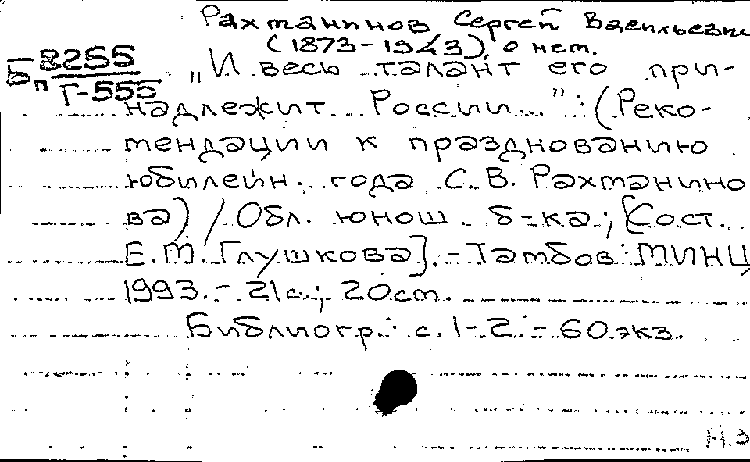 Рахманинов Сергей Васильевич
(1873-1943), о нем.
Бп 8255
Г-555
„И весь талант его при-
надлежит России..." : (Реко-
мендации к празднованию
юбилейн. года С. В. Рахманино
ва) / Обл. юнош. б-ка; [Сост.
Е.М. Глушкова]. - Тамбов: МИНЦ
1993. - 21с.; 20см.
Библиогр.: с. 1-2. - 60экз.